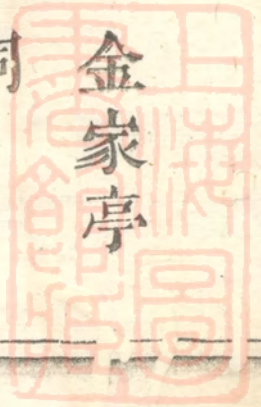 金家亭
上海圖
書館藏